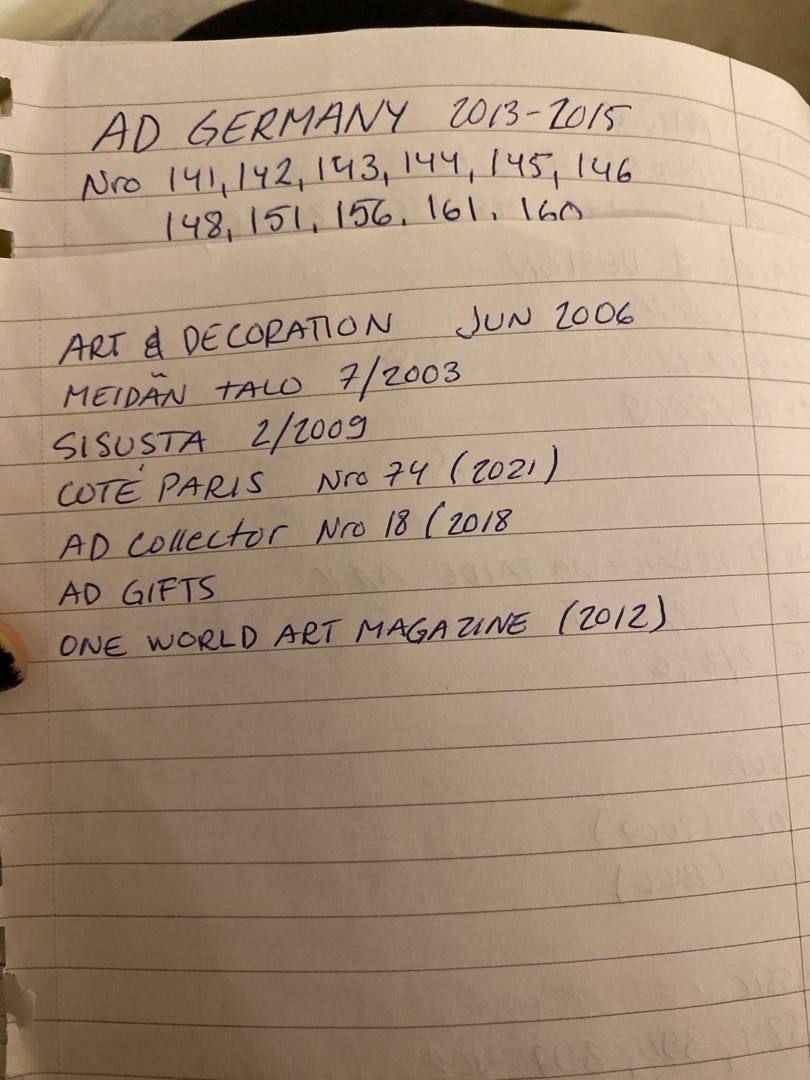 AD GERMANY 2013-2015
Nro 141, 142, 143, 144, 145, 146
148, 151, 156. 161. 160
ART & DECORATION JUN 2006
MEIDÄN TALO 7/2003
SISUSTA 2/2009
COTÉ PARIS Nro 74 (2021)
AD Collector Nro 18 (2018
AD GIFTS
ONE WORLD ART MAGAZINE (2012)